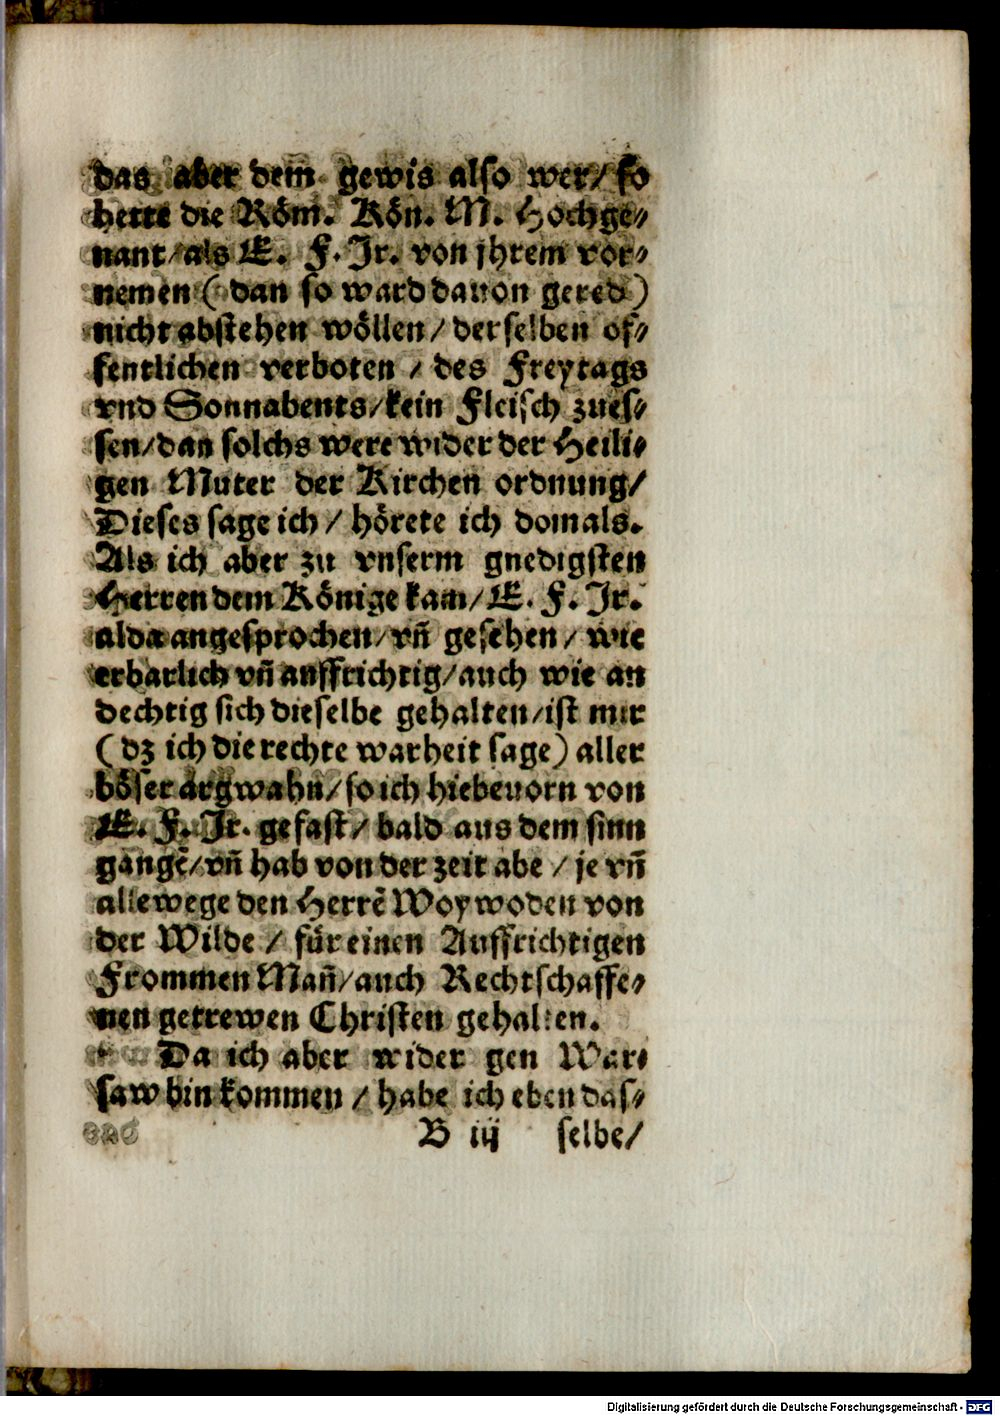 das aber dem gewis also wer/ so
hette die Röm. Kön. M. Hochge⸗
nant/als E. F. Jr. von jhrem vor⸗
nemen ( dan so ward dauon gered )
nicht abstehen wöllen/ derselben of⸗
fentlichen verboten / des Freytags
vnd Sonnabents/kein Fleisch zues⸗
sen/dan solchs were wider der Heili⸗
gen Muter der Kirchen ordnung/
Dieses sage ich / hörete ich domals.
Als ich aber zu vnserm gnedigsten
Herren dem Könige kam/ E. F. Jr.
alda angesprochen/ vñ gesehen/ wie
erbarlich vñ auffrichtig/auch wie an
dechtig sich dieselbe gehalten/ist mir
( dz ich die rechte warheit sage) aller
böser argwahn/ so ich hiebeuorn von
E. F. Jr. gefast/ bald aus dem sinn
gangē/ vñ hab von der zeit abe / je vñ
allewege den Herrē Woywoden von
der Wilde / für einen Auffrichtigen
Frommen Mañ/auch Rechtschaffe⸗
nen getrewen Christen gehalten.
Da ich aber wider gen War⸗
saw hin kommen / habe ich eben das⸗
B iij selbe/
Digitalisierung gefördert durch die Deutsche Forschungsgemeinschaft - DFG